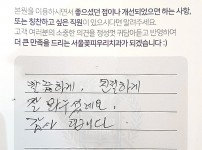 본원을 이용하시면서 좋으셨던 점이나 개선되었으면 하는 사항,
또는 칭찬하고 싶은 직원이 있으시다면 알려주세요.
고객 여러분의 소중한 의견을 정성껏 귀담아듣고 반영하며
더 큰 만족을 드리는 서울꽃피우리치과가 되겠습니다 :)
꼼꼼하게, 친절하게
잘 봐주셨네요,
감사 합니다.